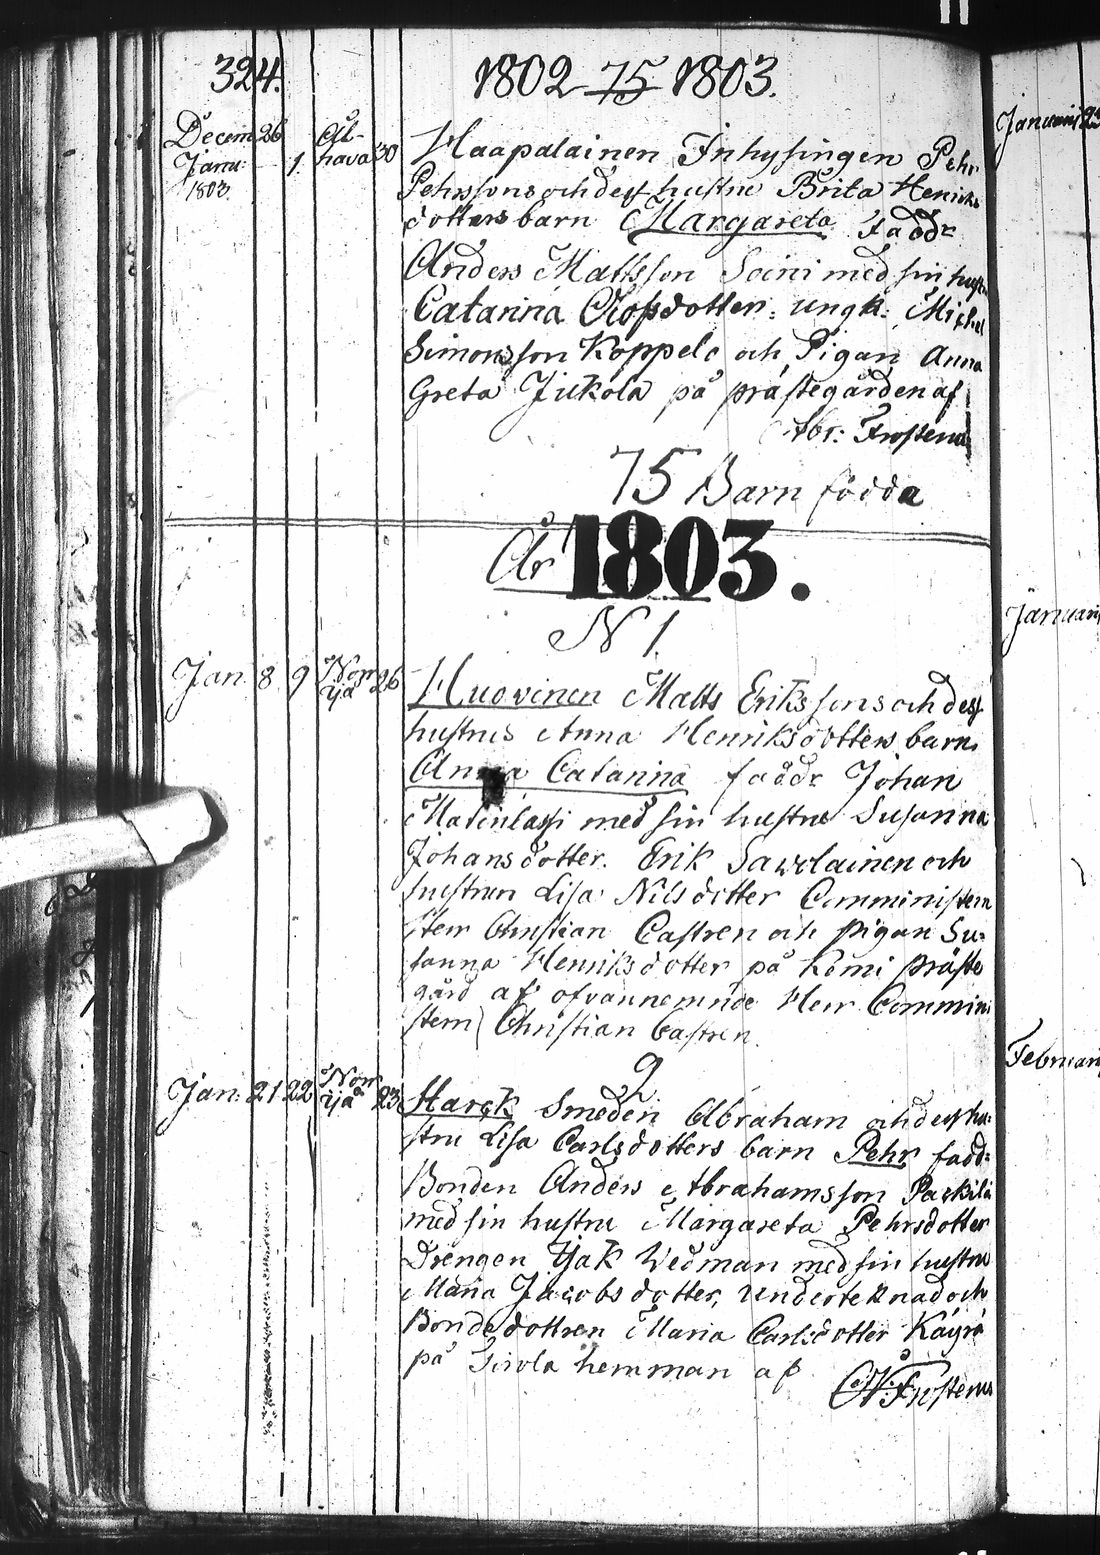 324. 1802 75 1803.
Decem 26 Ål- 30 Haapalainen Inhysingen Pehr
Janu: 1. hava Pehrssons och dess hustru Brita Henriks
1803. dotters barn Margareta. Faddr
Anders Mattsson Soini med sin hust
Catarina Olofsdotter: ungk: Michel
Simonsson Koppelo och Pigan Anna
Greta Jukola på prästegården af
Abr: Frosterus
75 Barn födda
År 1803.
N 1.
Jan 8 9 Norr 26 Huovinen Matts Erikssons och dess
yja hustrus Anna Henriksdotters barn
Anna Catarina faddr Johan
Matinlassi med sin hustru Susanna
Johansdotter. Erik Sawolainen och
hustrun Lisa Nilsdotter Comministern
Herr Christian Castren och pigan Su-
sanna Henriksdotter på Kemi präste
gård af ofvannemnde Herr Commini
stern Christian Castren.
2
Jan: 21 22 Norr 23 Starck Smeden Abraham och dess hu-
yja stru Lisa Carlsdotters barn Pehr fadd:
Bonden Anders Abrahamsson Parkila
med sin hustru Margareta Pehrsdotter
Drengen Isak Wedman med sin hustru
Maria Jacobsdotter, undertecknad och
Bondedottren Maria Carlsdotter Käyrä
på Sirola hemman af
Frosterus
Januari 23
Januari
Februari